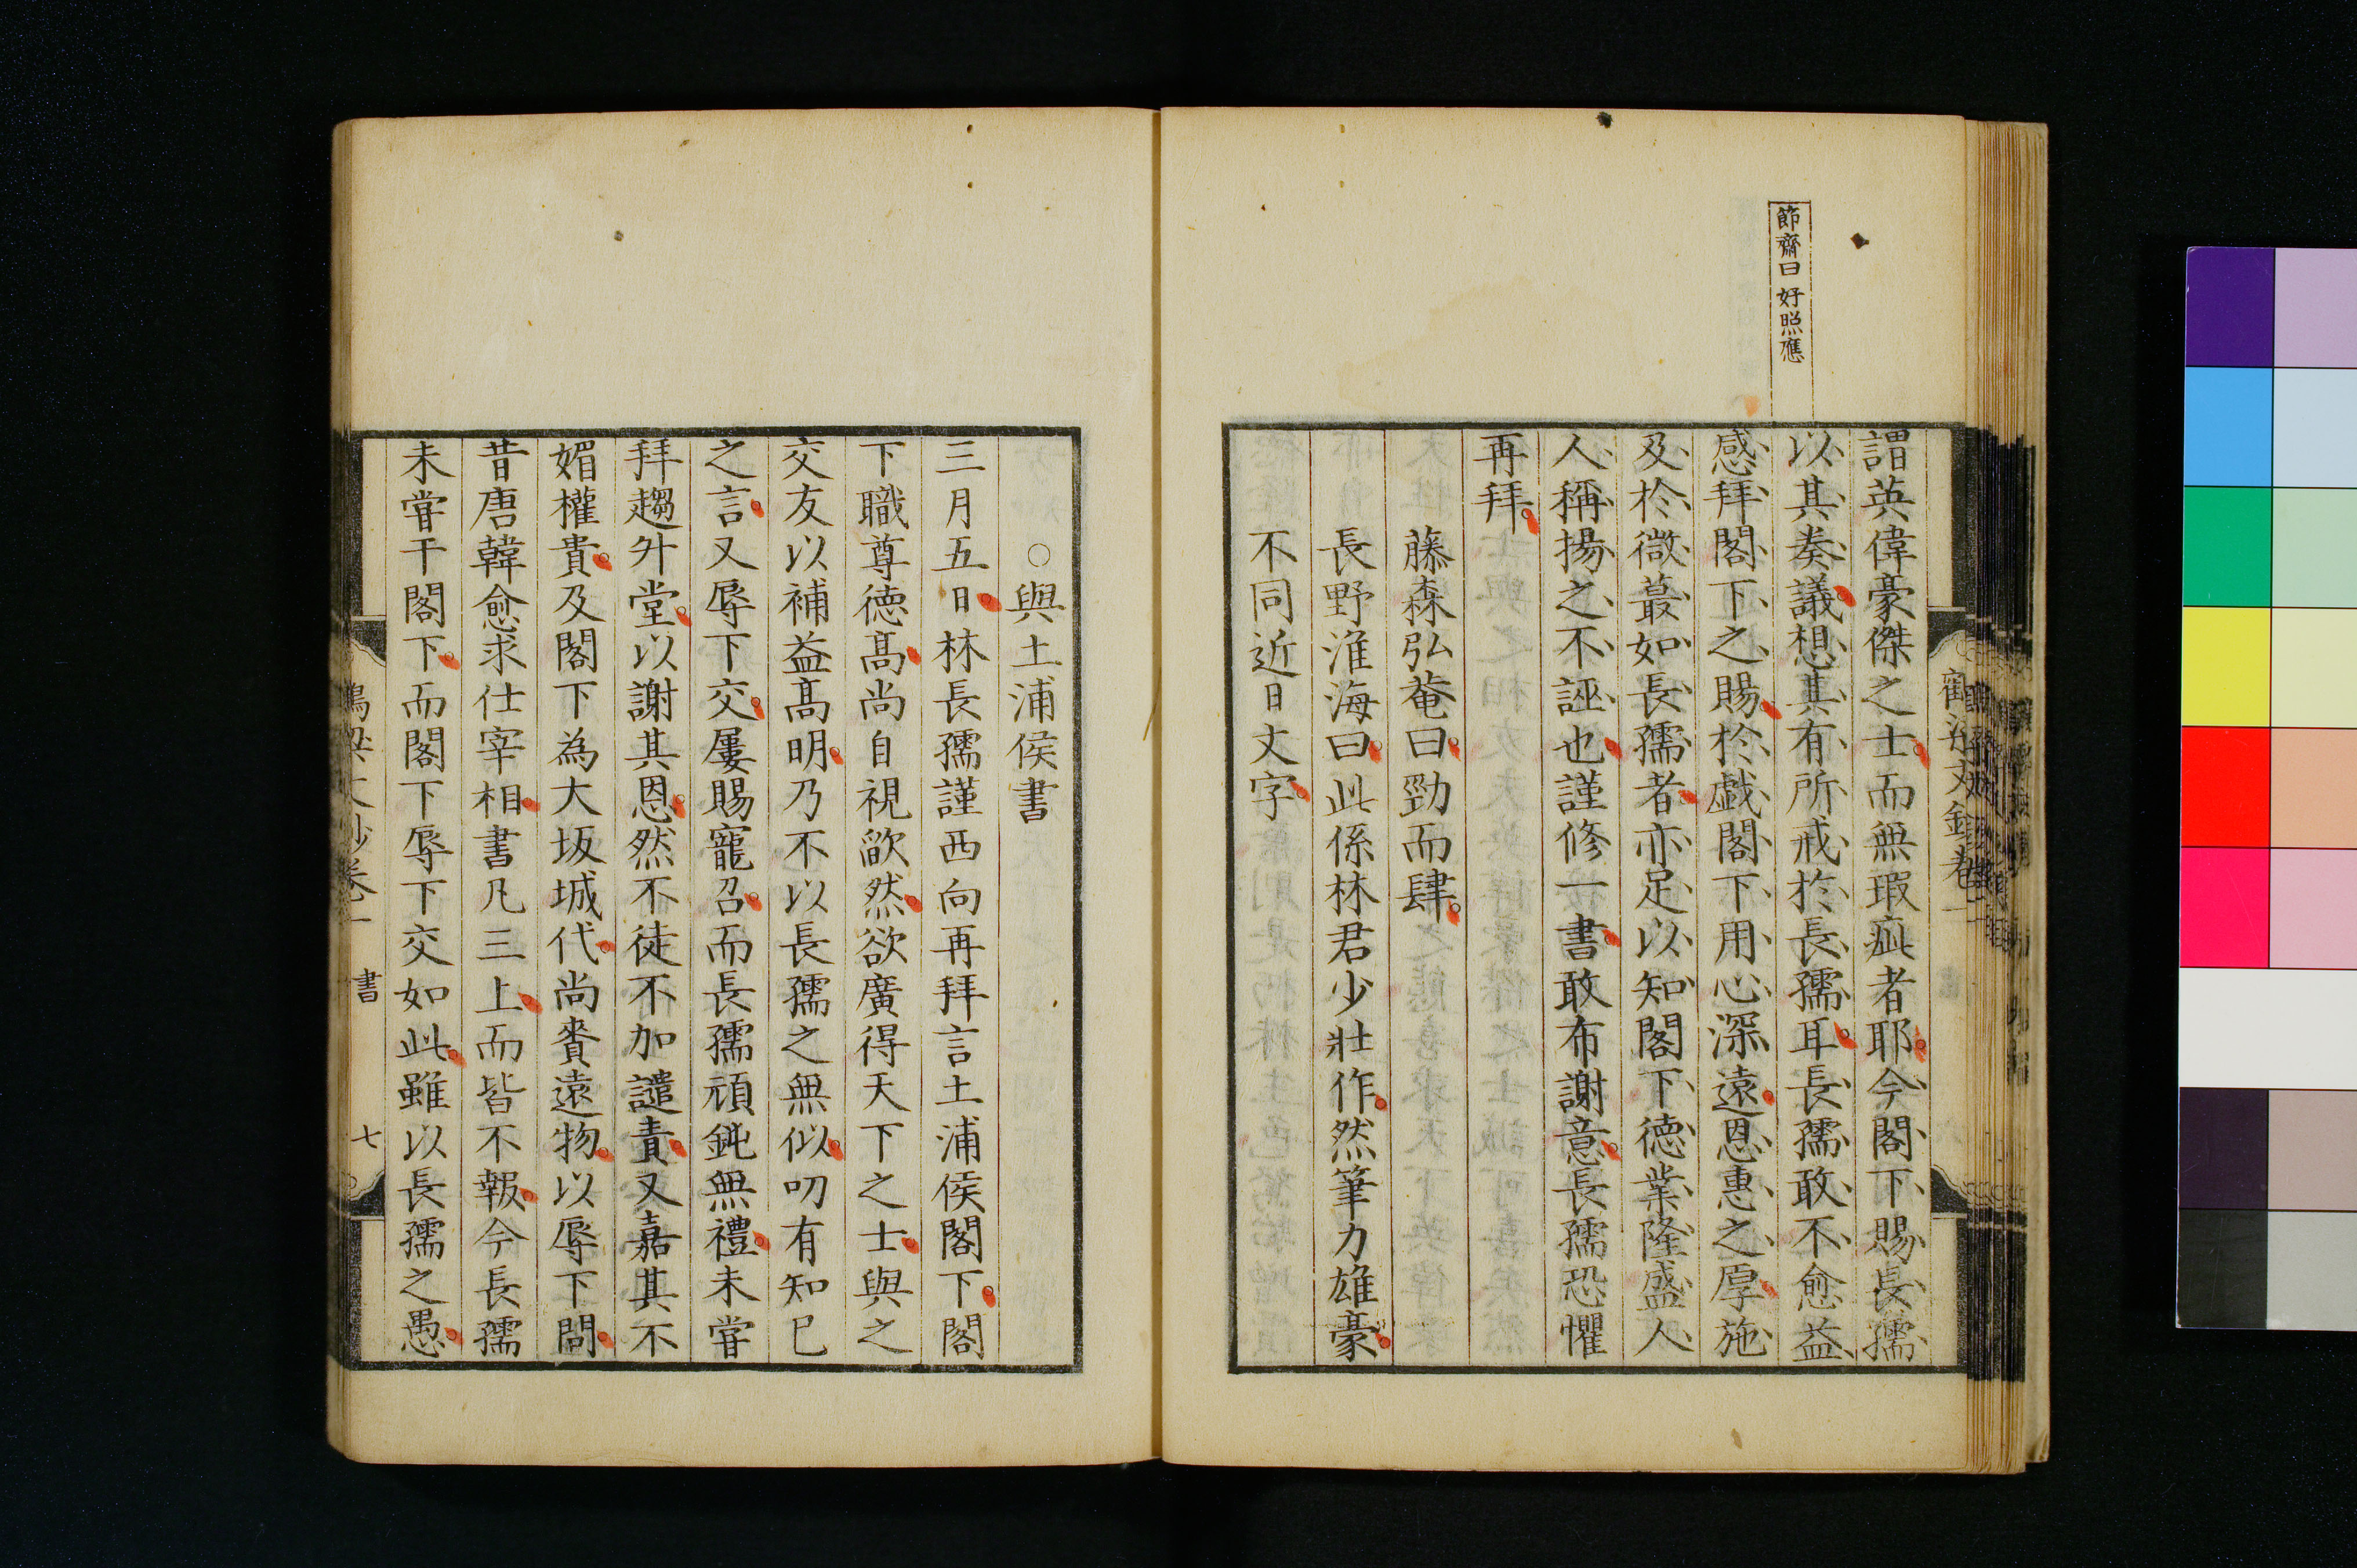 節齋曰好照應
謂英偉豪傑之士而無瑕疵者耶今閣下賜長孺
以其奏議想其有所戒於長孺耳長孺敢不愈益
感拜閣下之賜於戯閣下用心深遠恩惠之厚施
及於微蕞如長孺者亦足以知閣下德業隆盛人
人稱揚之不誣也謹修一書敢布謝意長孺恐懼
再拜
藤森弘菴曰勁而肆
長野淮海曰此係林君少壯作然筆力雄豪
不同近日文字
○與土浦侯書
三月五日林長孺謹西向再拜言土浦侯閣下閣
下職尊徳高尚自視欿然欲廣得天下之士與之
交友以補益高明乃不以長孺之無似叨有知己
之言又辱下交屢賜寵召而長孺頑鈍無禮未嘗
拜趨升堂以謝其恩然不徒不加譴責又嘉其不
媚權貴及閣下為大坂城代尚賚遠物以辱下問
昔唐韓愈求仕宰相書凡三上而皆不報今長孺
未嘗干閣下而閣下辱下交如此雖以長孺之愚
書
七